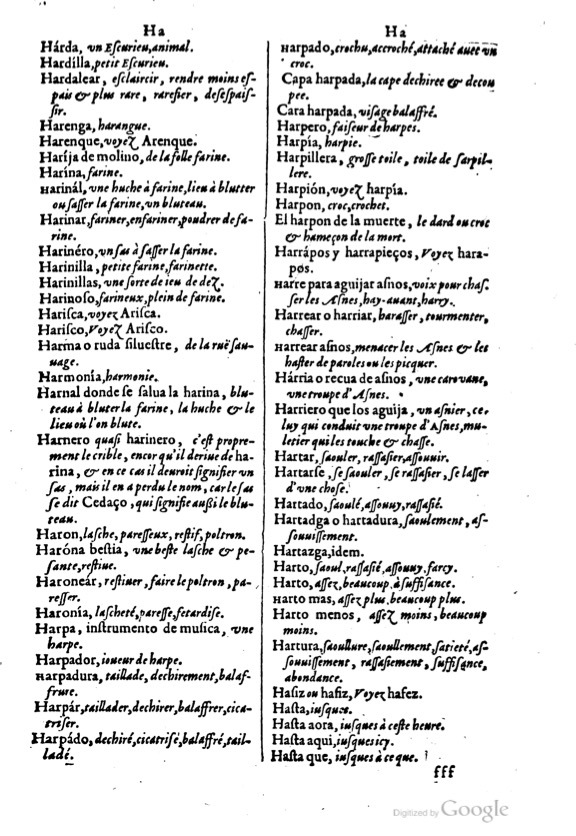 Ha
Hárda, vn Escurieu, animal.
Hardílla, petit Escurieu.
Hardalear, esclaircir, rendre moins es-
pais & plus rare, rarefier, desespaiſ-
ſir.
Harenga, harangue.
Harenque, voyez Arenque.
Haríja de molino, de la folle farine.
Harína, farine.
Harinál, vne huche à farine, lieu à blutter
ou ſaſſer la farine, vn bluteau.
Harinar, fariner, enfariner, poudrer de fa-
rine.
Harinéro, vn ſas à ſaſſer la farine.
Harinilla, petite farine, farinette.
Harinillas, vne ſorte de ieu de dez.
Harinoſo, farineux, plein de farine.
Hariſca, voyez Ariſca.
Hariſco, Voyez Ariſco.
Harma o ruda ſilueſtre, de la ruë ſau-
uage.
Harmonía, harmonie.
Harnal donde ſe ſalua la harina, blu-
teau à bluter la farine, la huche & le
lieu où l'on blute.
Harnero quaſi harinero, c'eſt propre-
ment le crible, encor qu'il deriue de ha-
rina, & en ce cas il deuroit ſignifier vn
ſas, mais il en a perdu le nom, car le ſas
ſe dit Cedaço, qui ſignifie außi le blu-
teau.
Haron, laſche, pareſſeux, reſtif, poltron.
Haróna beſtia, vne beſte laſche & pe-
ſante, reſtiue.
Haroneár, reſtiuer, faire le poltron, pa-
reſſer.
Haronía, laſcheté, pareſſe, fetardiſe.
Harpa, inſtrumento de muſica, vne
harpe.
Harpador, ioueur de harpe.
Harpadura, taillade, dechirement, balaf-
frure.
Harpár, taillader, dechirer, balaffrer, cica-
triſer.
Harpádo, dechiré, cicatriſé, balaffré, tail-
ladé.
Ha
Harpado, crochu, accroché, attaché auec vn
croc.
Capa harpada, la cape dechiree & decou
pee.
Cara harpada, viſage balaffré.
Harpero, faiſeur de harpes.
Harpía, harpie.
Harpillera, groſſe toile, toile de ſarpil-
lere.
Harpión, voyez harpía.
Harpon, croc, crochet.
El harpon de la muerte, le dard ou croc
& hameçon de la mort.
Harrápos y harrapieços, Voyez hara-
pos.
Harre para aguijar aſnos, voix pour chaſ-
ſer les Aſnes, hay-auant, harry.
Harrear o harriar, haraſſer, tourmenter,
chaſſer.
Harrear aſnos, menacer les Aſnes & les
haſter de paroles ou les picquer.
Hárria o recua de aſnos, vne carouane,
vne troupe d'Aſnes.
Harriero que los aguija, vn aſnier, ce-
luy qui conduit vne troupe d'Aſnes, mu-
letier qui les touche & chaſſe.
Hartar, ſaouler, raſſaſier, aſſouuir.
Hartarſe, ſe ſaouler, ſe raſſaſier, ſe laſſer
d'vne choſe.
Hartado, ſaoulé, aſſouuy, raſſaſié.
Hartadga o hartadura, ſaoulement, aſ-
ſouuiſſement.
Hartazga, idem.
Harto, ſaoul, raſſaſié, aſſouuy, farcy.
Harto, aſſez, beaucoup, à ſuffiſance.
Harto mas, aſſez plus, beaucoup plus.
Harto menos, aſſez moins, beaucoup
moins.
Hartura, ſaoullure, ſaoullement, ſatieté, aſ-
ſouuiſſement, raſſaſiement, ſuffiſance,
abondance.
Haſiz ou hafiz, Voyez hafez.
Haſta, iuſques.
Haſta aora, iuſques à ceſte heure.
Haſta aqui, iuſques icy.
Haſta que, iuſques à ce que.
fff
Digitized by Google